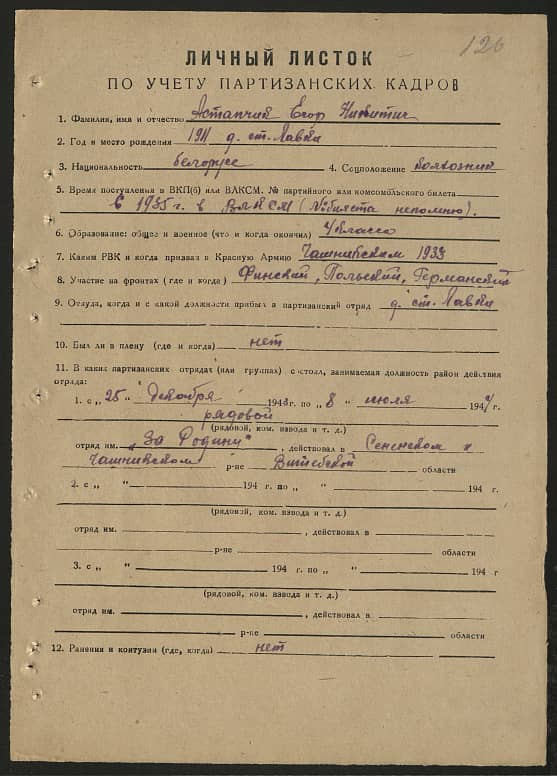 126
ЛИЧНЫЙ ЛИСТОК
ПО УЧЕТУ ПАРТИЗАНСКИХ КАДРОВ
1. Фамилия, имя и отчество Астапчик Егор Никитич
2. Год и место рождения 1911 д. ст. Лавки
3. Национальность белорус 4. Соцположение колхозник
5. Время поступления в ВКП(б) или ВЛКСМ. № партийного или комсомольского билета
в 1935 г. в ВЛКСМ (№ билета непомню).
6. Образование: общее и военное (что и когда окончил) 4 класса
7. Каким РВК и когда призван в Красную Армию Чашникским 1933
8. Участие на фронтах (где и когда) Финский, Польский, Германский
9. Откуда, когда и с какой должности прибыл в партизанский отряд д. ст. Лавки
10. Был ли в плену (где и когда) нет
11. В каких партизанских отрядах (или группах) состоял, занимаемая должность район действия
отряда:
1. с „ 25 " Декабря 1943 г. по „ 8 " июля 1944 г.
рядовой
(рядовой, ком. взвода и т. д.)
отряд им. „За Родину" , действовал в Сененском и
Чашникском р-не Витебской области
2. с „ " 194 г. по „ " 194 г.
(рядовой, ком. взвода и т. д.)
отряд им. , действовал в
р-не области
3. с „ " 194 г. по „ " 194 г
(рядовой, ком. взвода и т. д.)
отряд им. , действовал в
р-не области
12. Ранения и контузии (где, когда) нет